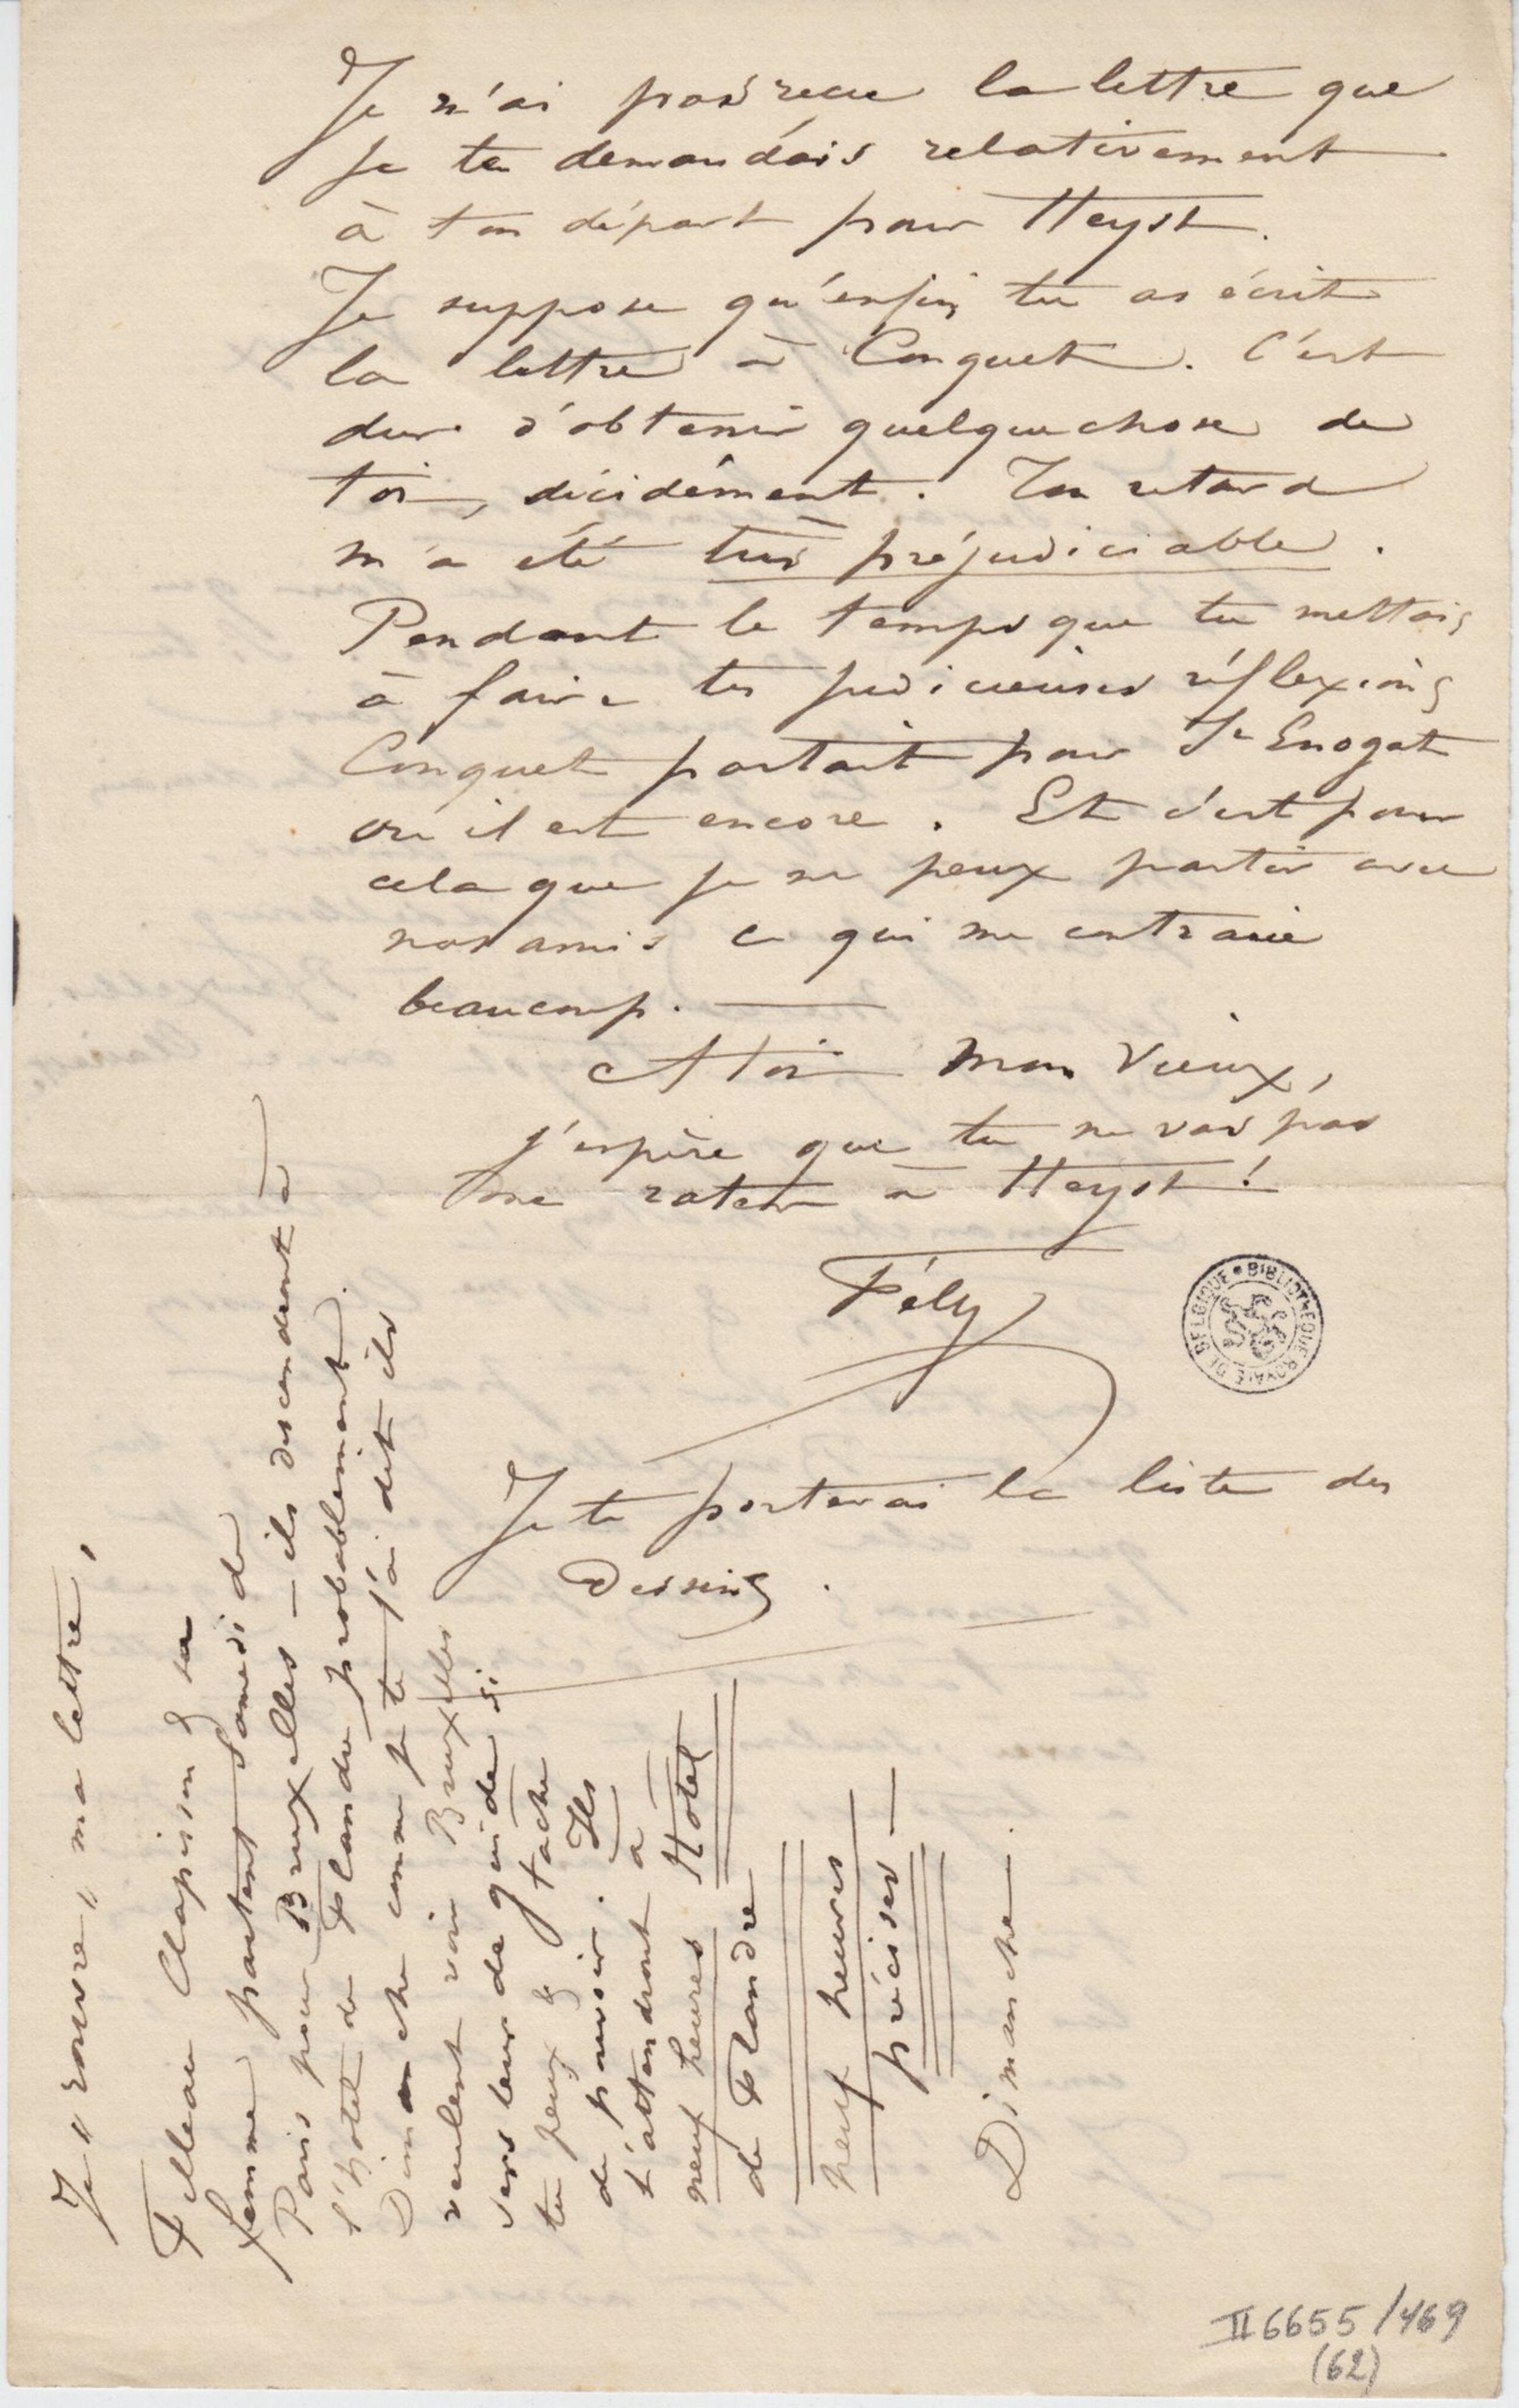 Je n'ai pas reçu la lettre que
je te demandais relativement
à ton départ pour Heyst.
Je suppose qu'enfin tu as écrit
la lettre à Conquet. C'est
dur d'obtenir quelque chose de
toi, décidément. Ton retard
m'a été très préjudiciable.
Pendant le temps que tu mettais
à faire tes judicieuses réflexions
Conquet partait pour St Enogat
où il est encore. Et c'est pour
cela que je ne peux partir avec
nos amis ce qui me contrarie
beaucoup. —
A toi mon Vieux,
j'espère que tu ne vas pas
me rater à Heyst !
Fély
Je te porterai la liste des
dessins.
Je " rouvre " ma lettre,
Filleau Clapisson & sa
femme partent Samedi de
Paris pour Bruxelles – ils descendront à
l'hotel de Flandre probablement.
Dimanche comme je te l'ai dit ils
veulent voir Bruxelles
sers leur de guide si
tu peux & tache
de pouvoir. Ils
t'attendront à
neuf heures Hotel
de Flandre
neuf heures
précises —
Dimanche.
BIBLIOTHEQUE ROYALE DE BELGIQUE
II 6655/469
(62)